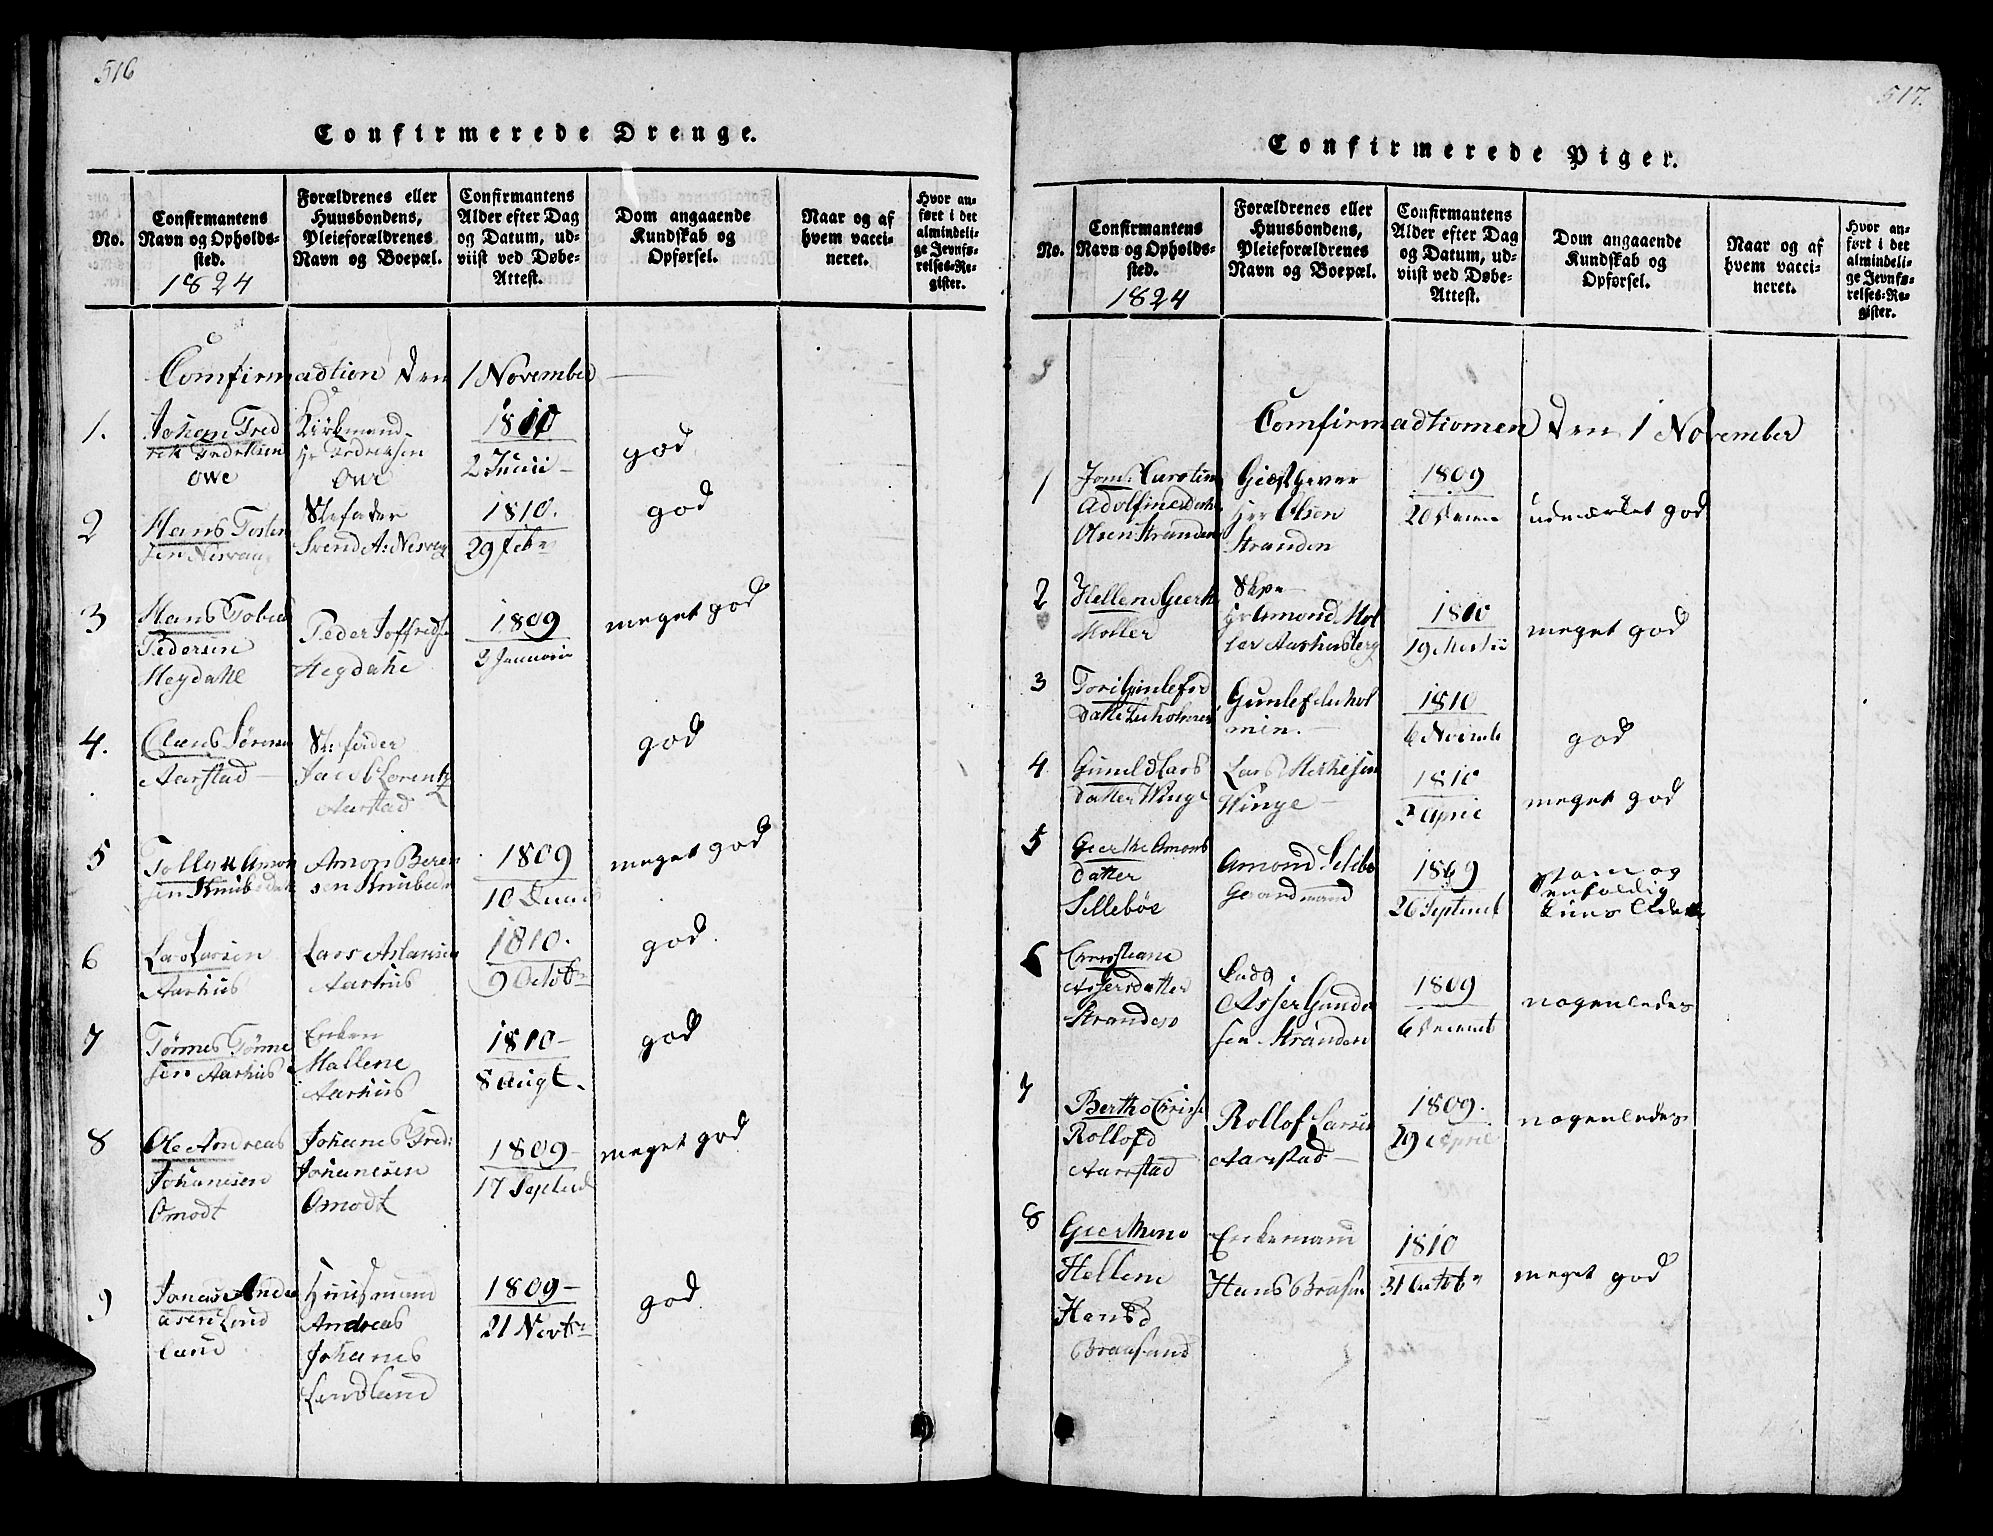 516
Confirmerede Drenge.
No.
Confirmantens
Navn og Opholds-
sted.
1824
Forældrenes eller
Huusbondens,
Pleieforældrenes
Navn og Boepæl.
Confirmantens
Alder efter Dag
og Datum, ud-
viist ved Døbe-
Attest.
Dom angaaende
Kundskab og
Opførsel.
Naar og af
hvem vacci-
neret.
Hvor an-
ført i det
almindeli-
ge Jevnfø-
relses-Re-
gister.
Comfirmadtion Den 1 November
1.
Johan Fred
rik Fredriksen
Owe
Kirkmand
Hr Fredriksen
Owe
1810
2 Junii
god
2
Hans Tosten
sen Nesvaag
Stefader
Svend As: Nesvag
1810.
29 Feb
god
3
Hans Tobia
Pedersen
Hegdahl
Peder Joffreds
Hegdahl
1809
2 Januarii
meget god
4.
Claus Sørensen
Aarstad
Stefader
Jacob Lorentz
Aarstad
god
5
Tollak Amon
sen Knubedal
Amon Beren
sen Knubedal
1809
10
meget god
6
Lars Larsen
Aarhus
Lars Aslaksen
Aarhus
1810.
9 Octobr
god.
7
Tørmes Tørme
sen Aarhus
Enken
Mallene
Aarhus
1810
8 Augt.
god
8
Ole Andreas
Johanesen
Omodt
Johanes Fred:
Johanesen
Omodt
1809
17 Septembr
meget god
9
Jonas Andre
asen Lind
land
Huusmand
Andreas
Johanes
Lindland
1809
21 Novbr
god.
517.
Confirmerede Piger.
No.
Confirmantens
Navn og Opholds-
sted.
1824
Forældrenes eller
Huusbondens,
Pleieforældrenes
Navn og Boepæl.
Confirmantens
Alder efter Dag
og Datum, ud-
viist ved Døbe-
Attest.
Dom angaaende
Kundskab og
Opførsel.
Naar og af
hvem vacci-
neret.
Hvor an-
ført i det
almindeli-
ge Jevnfø-
relses-Re-
gister.
Comfirmadtionen Den 1 November
1
Jom: Carstine
Adolfine
Olsen Stranden
Giæstgever
Her Olsen
Stranden
1809
20
udmærket god
2
Hellene Geerth
Moller
Hr Amond Mol
ler Aarhusberg
1810
19 Martii
meget god
3
Tori Gunlefsd
datte
Gunlef
1810
6 Novemb
god
4
Gunild Lars
datter Winge
Lars
Winge
1810
2 April
meget god
5
Geerthe Amons
datter
Sellebøe
Amond Selebø
Gaardmand
1809
26 Septembr
enfoldig
6
Christiane
Assersdatter
Stranden
Asser Gunder
sen Stranden
1809
6 Decemb
nogenledes
7
Bertho
Rollofd
Aarstad
Rollof Larsen
Aarstad
1809.
29 April
nogenledes
8
Geerthene
Hellene
Hansd
Braasand
Enkemand
Hans
1810
31 Octobr
meget god